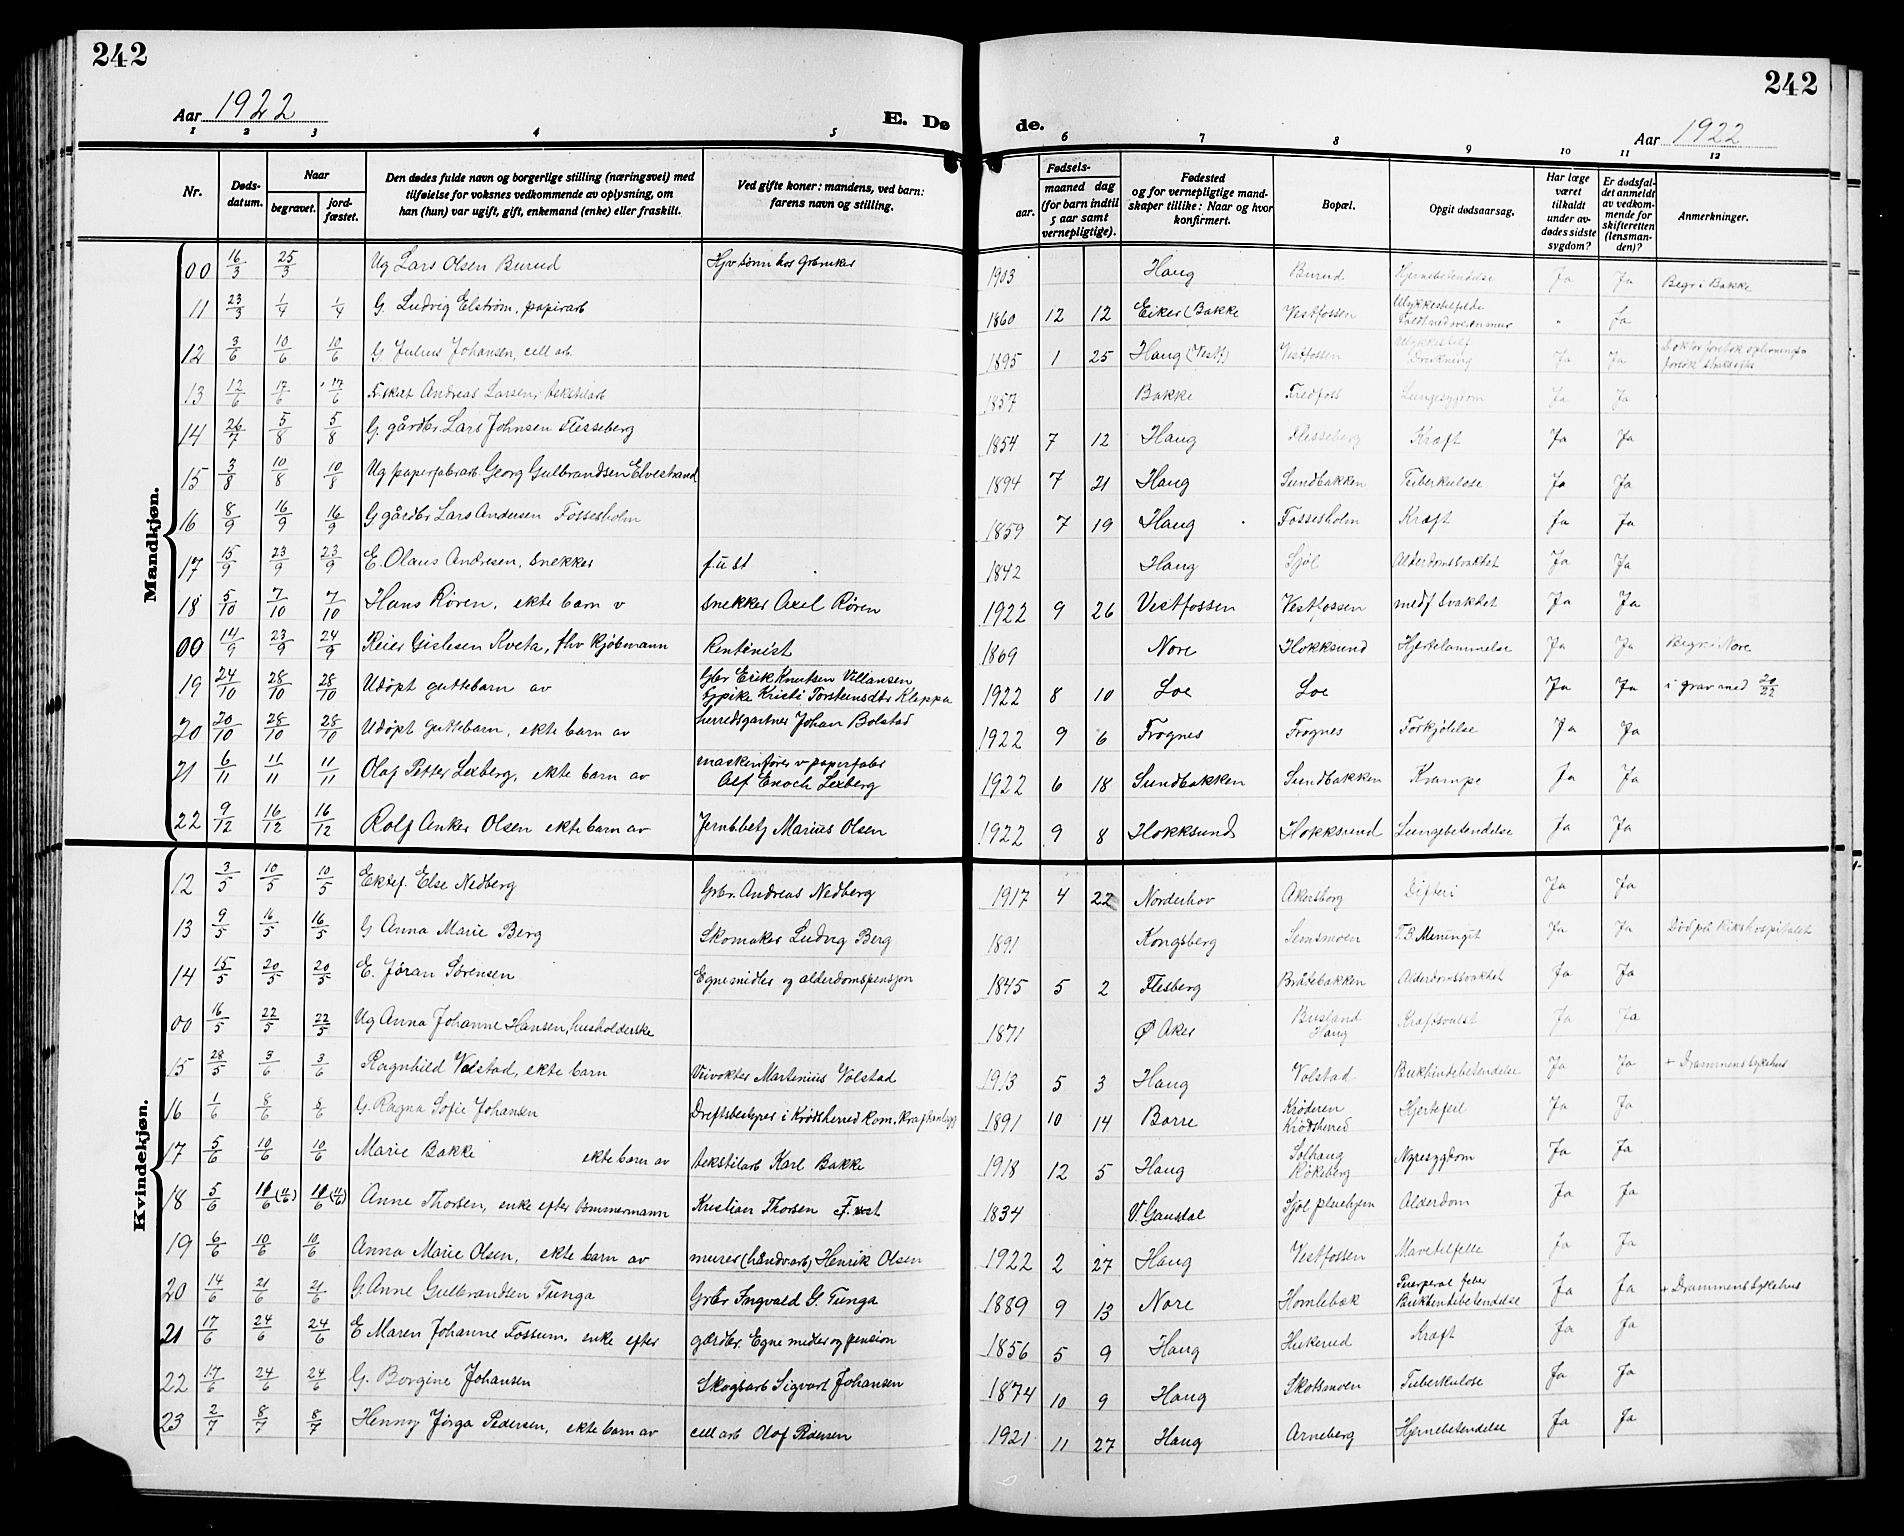 242
242
Aar 1922
E. Dø
de.
Aar 1922
1 2 3 4 5 6 7 8 9 10 11 12
Nr. Døds-datum. Naar begravet. jord-fæstet. Den dødes fulde navn og borgerlige stilling (næringsvei) med tilføielse for voksnes vedkommende av oplysning, om han (hun) var ugift, gift, enkemand (enke) eller fraskilt. Ved gifte koner: mandens, ved barn: farens navn og stilling. Fødsels- aar. maaned dag (for barn indtil 5 aar samt vernepligtige). Fødested og for vernepligtige mand-skaper tillike: Naar og hvor konfirmert. Bopæl. Opgit dødsaarsag. Har læge været tilkaldt under av-dødes sidste sygdom? Er dødsfal-det anmeldt av vedkom-mende for skifteretten (lensman-den)? Anmerkninger.
Mandkjøn.
00 16/3 25/3 Ug Lars Olsen Burud Hjv sønn hos Gbruker 1903 Haug Burud Hjernebetendelse Ja Ja Begr i Bakke
11 23/3 1/4 1/4 G. Ludvig Elstrøm, papirarb 1860 12 12 Eiker (Bakke Vestfossen Ulykkestilfelde Faldt ned over en mur " Ja
12 3/6 10/6 10/6 G. Julius Johansen, cell arb. 1895 1 25 Haug (Vestf) Vestfossen Ulykkestilf Drukning Ja Ja Doktor foretok oplivnings forsøk straks efter
13 12/6 17/6 17/6 F. skilt Andreas Larsen, tekstilarb 1857 Bakke Fredfoss Lungesygdom Ja Ja
14 26/7 5/8 5/8 G. gårdbr. Lars Johnsen Flesseberg 1854 7 12 Haug Flesseberg Kræft Ja Ja
15 3/8 10/8 10/8 Ug papirfabrarb. Georg Gulbrandsen Elvestrand 1894 7 21 Haug Sundbakken Tuberkulose Ja Ja
16 8/9 16/9 16/9 G gårdbr Lars Andersen Fossesholm 1859 7 19 Haug Fossesholm Kræft Ja Ja
17 15/9 23/9 23/9 E. Olaus Andresen, snekker f.u st 1842 Haug Sjøl Alderdomssvakhet Ja Ja
18 5/10 7/10 7/10 Hans Røren, ekte barn v snekker Axel Røren 1922 9 26 Vestfossen Vestfossen medf svakhet Ja Ja
00 14/9 23/9 24/9 Reier Gislesen Kveta, fhv kjøbmann Rentenist 1869 Nore Hokksund Hjertelammelse Ja Ja Begr. i Nore
19 24/10 28/10 28/10 Udøpt guttebarn av Gbr Erik Knutsen Villansen
Gpike Kristi Torsteinsdtr Kleppa 1922 8 10 Loe Loe Ja Ja i grav med 20/22
20 20/10 28/10 28/10 Udøpt guttebarn, ekte barn av herredsgartner Johan Bolstad 1922 9 6 Frognes Frognes Forkjølelse Ja Ja
21 6/11 11/11 11/11 Olaf Petter Lexberg, ekte barn av maskinfører v papirfabr
Alf Enoch Lexberg 1922 6 18 Sundbakken Sundbakken Krampe Ja Ja
22 9/12 16/12 16/12 Rolf Anker Olsen ekte barn av Jernb.betj Marius Olsen 1922 9 8 Hokksund Hokksund Lungebetendelse Ja Ja
Kvindekjøn.
12 3/5 10/5 10/5 Ektef. Else Nedberg Grbr. Andreas Nedberg 1917 4 22 Norderhov Akersborg Difteri Ja Ja
13 9/5 16/5 16/5 G Anna Marie Berg Skomaker Ludvig Berg 1891 Kongsberg Semsmoen T.B. Meningit Ja Ja Død på Rikshospitalet
14 15/5 20/5 20/5 E. Jøran Sørensen Egne midler og alderdomspensjon 1845 5 2 Flesberg Bråtebakken Alderdomssvakhet Ja Ja
00 16/5 22/5 22/5 Ug Anna Johanne Hansen, husholderske 1871 Ø Aker Busland Haug Kræftsvulst Ja Ja
15 28/5 3/6 3/6 Ragnhild Volstad, ekte barn Veivokter Martenius Volstad 1913 5 3 Haug Volstad Bukhindebetendelse Ja Ja + Drammens sykehus
16 1/6 8/6 8/6 G. Ragna Sofie Johansen Driftsbestyrer i Krødsherred kom. kraftanlegg 1891 10 14 Borre Krøderen Krødsherred Hjertefeil Ja Ja
17 5/6 10/6 10/6 Marie Bakke ekte barn av tekstilarb Karl Bakke 1918 12 5 Haug Solhaug Røkeberg Nyresygdom Ja Ja
18 5/6 11/6 (11/6) 11/6 (11/6) Anne Thorsen, enke efter tømmermann Kristian Thorsen F. vest 1834 V. Gausdal Sjøl pleiehjem Alderdom Ja Ja
19 6/6 10/6 10/6 Anna Marie Olsen, ekte barn av murer (håndvarb) Henrik Olsen 1922 2 27 Haug Vestfossen Mavetilfelle Ja Ja
20 14/6 21/6 21/6 G. Anne Gulbrandsen Tunga Grbr Ingvald G. Tunga 1889 9 13 Nore Homlebæk Puerperal feber Bukhindebetendelse Ja Ja + Drammens sykehus
21 17/6 24/6 24/6 E Maren Johanne Fossum, enke efter gårdbr. Egne midler og pension 1856 5 9 Haug Hukerud Kræft Ja Ja
22 17/6 24/6 24/6 G. Borgine Johansen Skogsarb Sigvart Johansen 1874 10 9 Haug Skotsmoen Tuberkulose Ja Ja
23 2/7 8/7 8/7 Henny Jørga Pedersen, ekte barn av cell arb Olaf Pedersen 1921 11 27 Haug Arneberg Hjernebetendelse Ja Ja